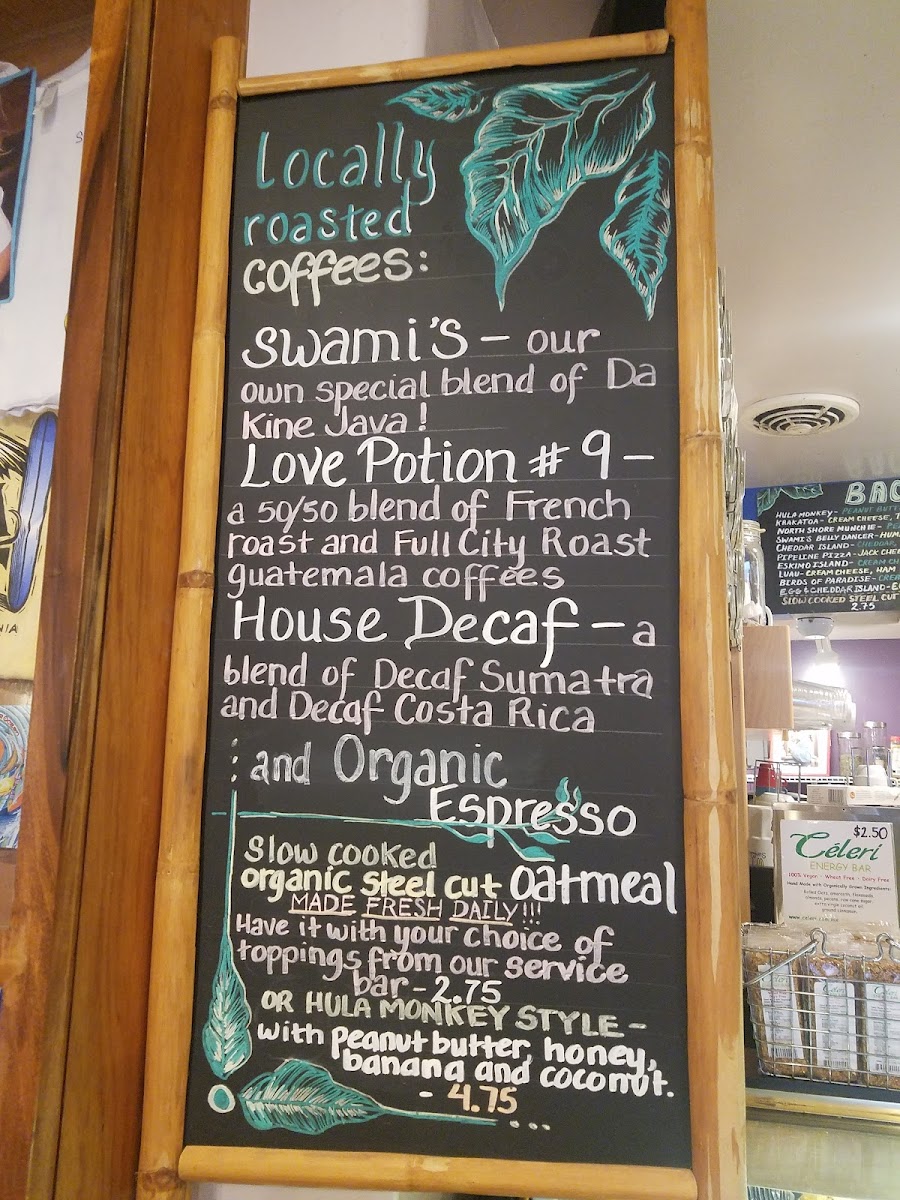 Locally
roasted
coffees:
Swami's - our
own special blend of Da
Kine Java!
Love Potion # 9 -
a 50/50 blend of French
roast and Full City Roast
guatemala coffees
House Decaf - a
blend of Decaf Sumatra
and Decaf Costa Rica
: and Organic
Espresso
Slow cooked
organic steel cut oatmeal
MADE FRESH DAILY!!!
Have it with your choice of
toppings from our service
bar - 2.75
OR HULA MONKEY STYLE -
with peanut butter, honey,
banana and coconut.
- 4.75
...
HULA MONKEY - PEANUT BUTT
KRAKATOA - CREAM CHEESE, T
NORTH SHORE MUNCHIE -
SWAMI'S BELLY DANCER - HUM
CHEDDAR ISLAND - CHEDDAR,
PIPELINE PIZZA - JACK CHE
ESKIMO ISLAND - CREAM CH
LUAU - CREAM CHEESE, HAM
BIRDS OF PARADISE - CREA
EGG & CHEDDAR ISLAND - EG
SLOW COOKED STEEL CUT
2.75
$2.50
Céleri
ENERGY BAR
100% Vegan - Wheat Free - Dairy Free
Hand Made with Organically Grown Ingredients: